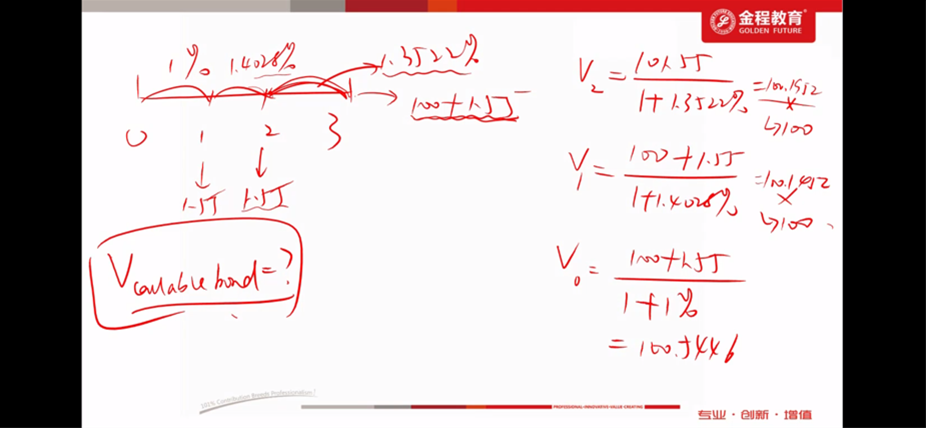 金程教育
GOLDEN FUTURE
1% 1.4028% 1.3522%
100+1.55
0 1 2 3
1.55 1.55
V callable bond = ?
V₂ = 101.55 / 1+1.3522% = 100.1952
↳100
V₁ = 100+1.55 / 1+1.4028% = 100.1452
↳100
V₀ = 100+1.55 / 1+1%
= 100.5446
100% Contribution Breeds Professionalism!
PROFESSIONAL·INNOVATIVE·VALUE CREATING
专业·创新·增值